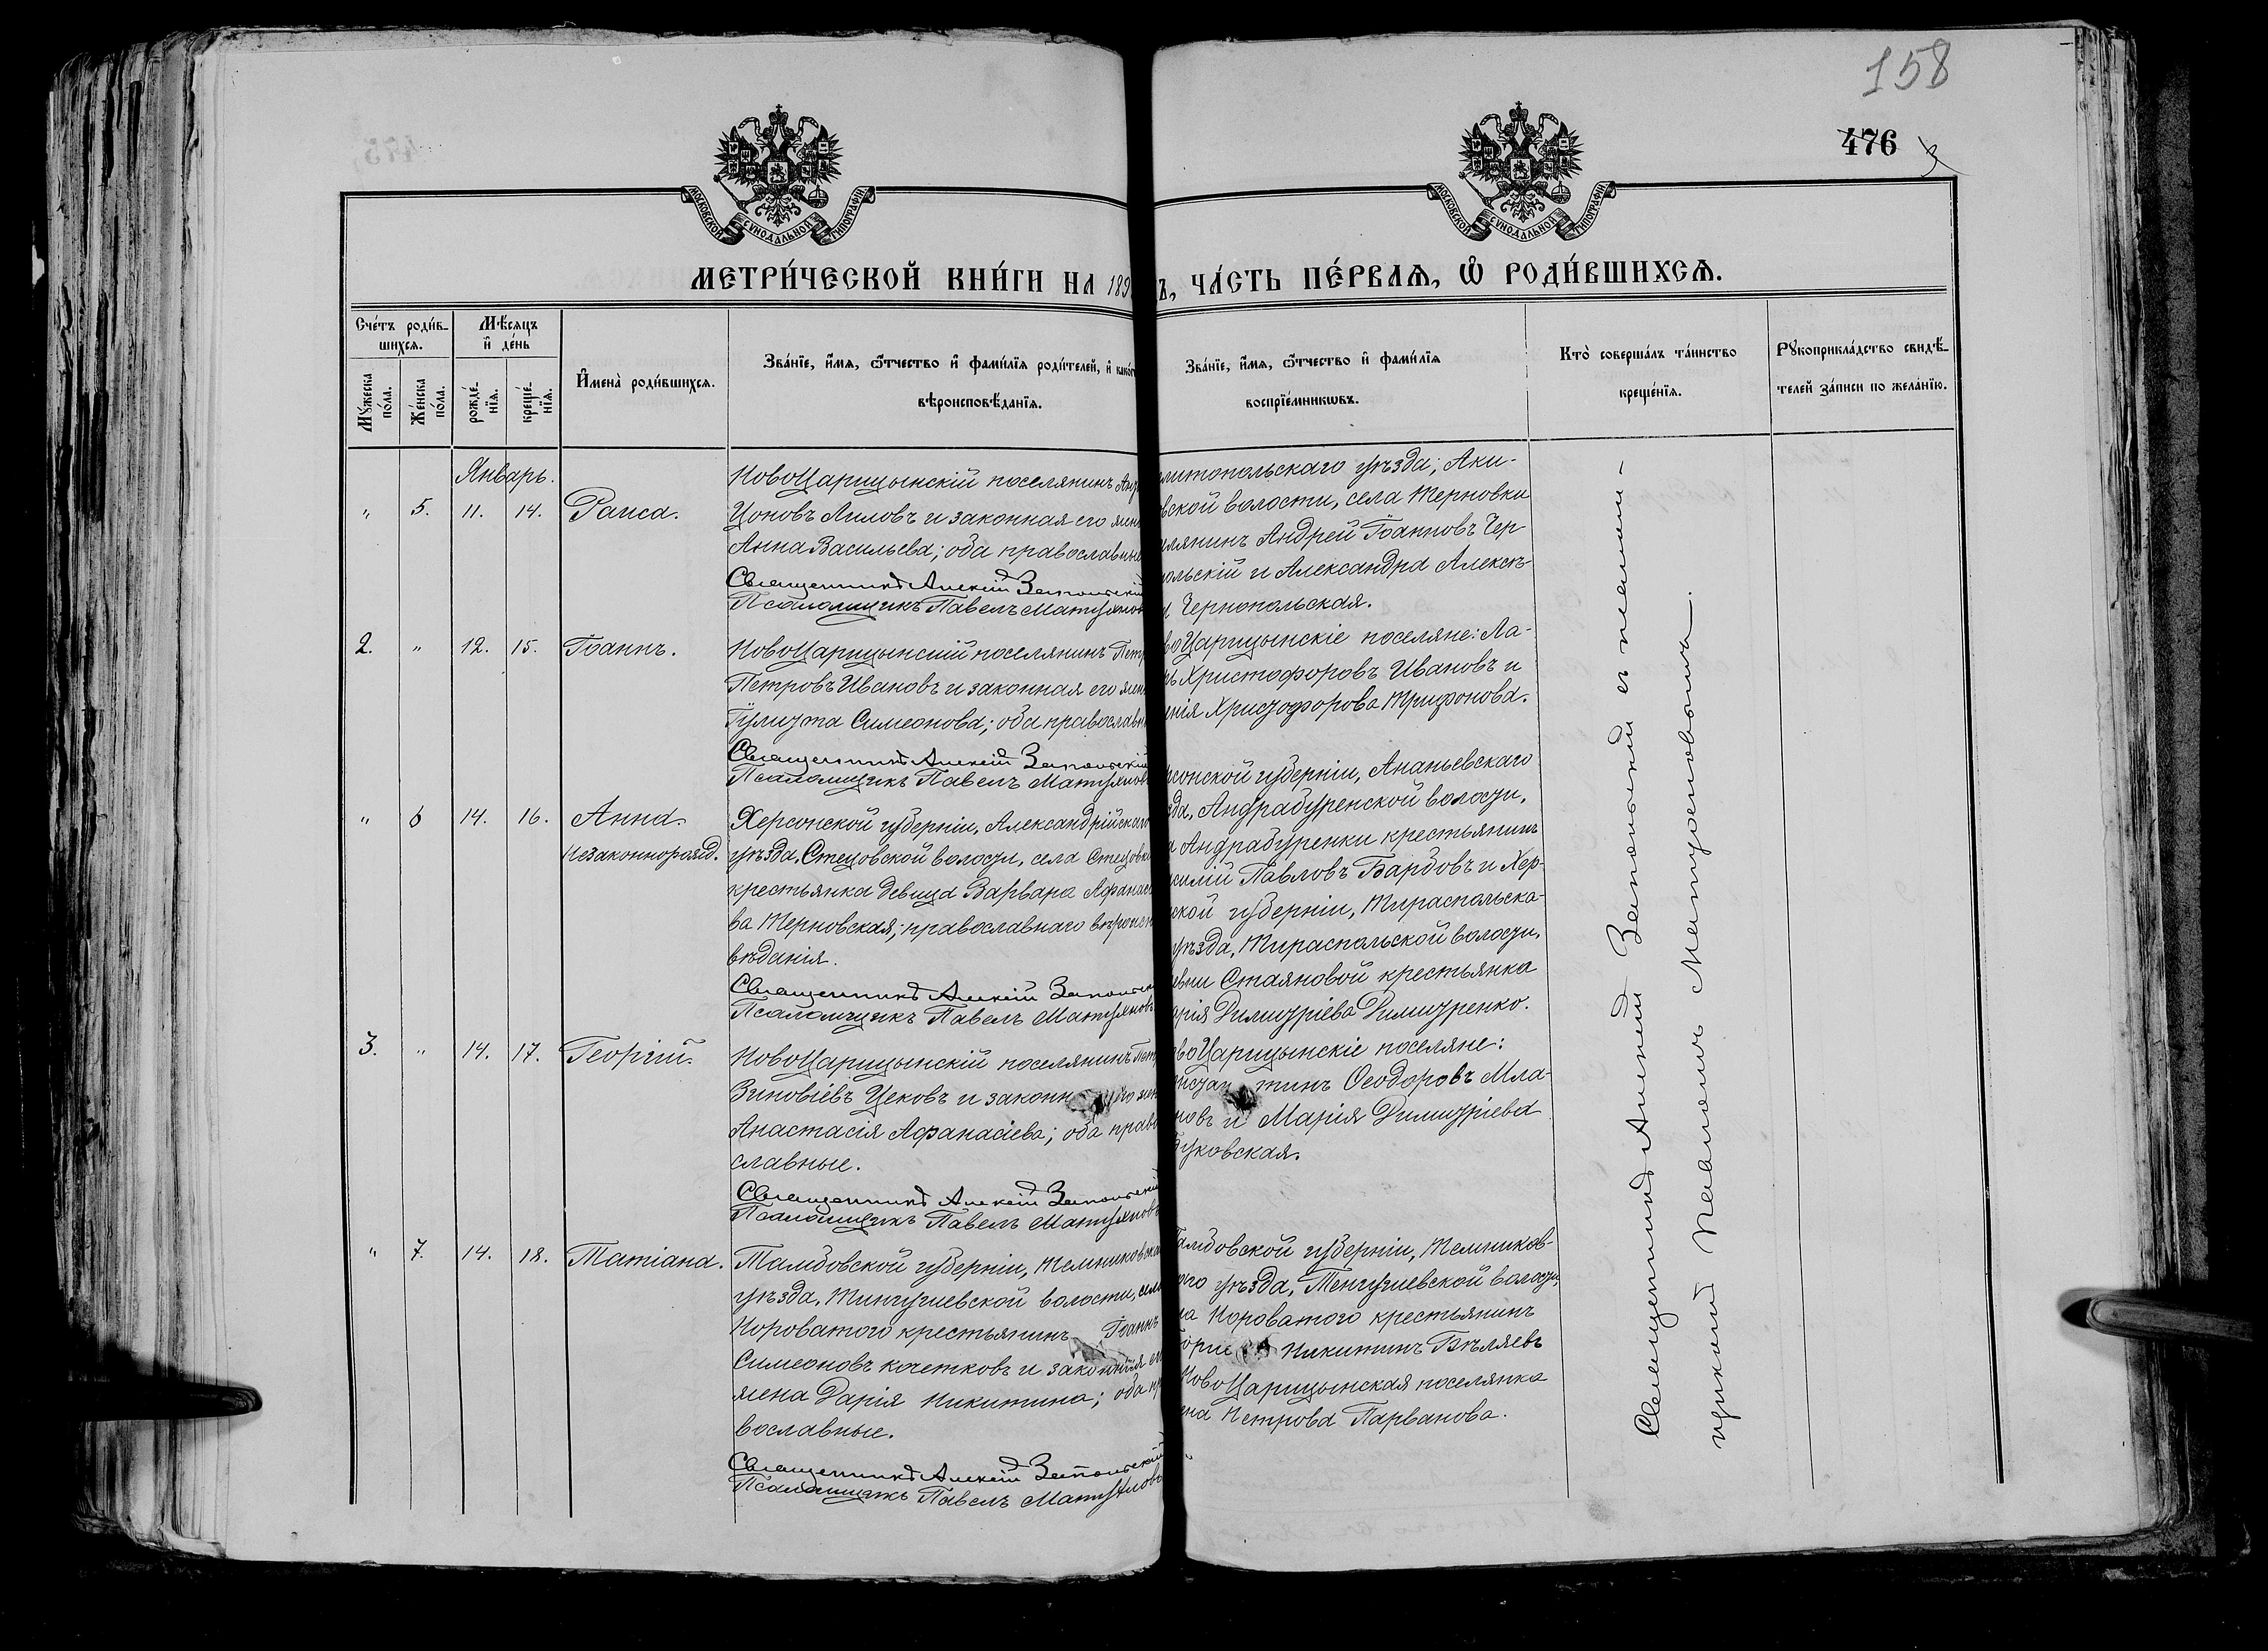 158
476
МОСКОВСКОЙ СУНОДАЛЬНОЙ ТИПОГРАФІИ
МОСКОВСКОЙ СУНОДАЛЬНОЙ ТИПОГРАФІИ
МЕТРИ́ЧЕСКОЙ КНИ́ГИ НА 189
Ъ, ЧА́СТЬ ПЕ́РВАѦ, Ѡ҆ РОДИ́ВШИХСѦ.
Сче́тъ роди́в-
шихсѧ.
Мѣ́сѧцъ
и҆ де́нь
Мꙋ́жеска
по́ла.
Же́нска
по́ла.
рожде́-
нїѧ.
креще́-
нїѧ.
И҆мена̀ роди́вшихсѧ.
Зва́нїе, и҆́мѧ, ѻ҆́тчество и҆ фами́лїѧ роди́телей, и҆ како́г
вѣроисповѣ́данїѧ.
Зва́нїе, и҆́мѧ, ѻ҆́тчество и҆ фами́лїѧ
воспрїе́мникѡвъ.
Кто̀ соверша́лъ та́инство
креще́нїѧ.
Рꙋкоприкла́дство свидѣ́-
телей за́писи по жела́нїю.
Январь.
" 5. 11. 14. Раиса.
НовоЦарицынскій поселянинъ Анд
Цоновъ Лиловъ и законная его жен
Анна Васильева; оба православные
Священникъ Алексій Запольскій
Псаломщикъ Павелъ Матуяновъ
литопольскаго уѣзда; Аки-
вской волости, села Терновки
елянинъ Андрей Іоанновъ Чер-
польскій и Александра Алексѣ-
Чернопольская.
2. " 12. 15. Іоаннъ.
НовоЦарицынскій поселянинъ Петр
Петровъ Ивановъ и законная его жен
Симеонова; оба православн
Священникъ Алексій Запольскій
Псаломщикъ Павелъ Матуянов
воЦарицынскіе поселяне: Ла-
ь Христофоровъ Ивановъ и
енія Христофорова Трифонова.
" 6 14. 16. Анна
незаконнорожд.
Херсонской губерніи, Александрійскаго
уѣзда, Стецовской волости, села Стецовки
крестьянка девица Варвара Афанась
ва Терновская; православнаго вѣроиспо
вѣданія.
Священникъ Алексій Запольск
Псаломщикъ Павелъ Матуяновъ
рсонской губерніи, Ананьевскаго
зда, Андрабуренской волости,
а Андрабуренки крестьянинъ
силій Павловъ Барбовъ и Хер-
ской губерніи, Тираспольска-
уѣзда, Тираспольской волости,
евни Стаяновой крестьянка
арія Димитріева Димитренко.
3. " 14. 17. Георгій.
НовоЦарицынскій поселянинъ Петр
Зиновіевъ Цековъ и законн его жен
Анастасія Афанасіева; оба право
славные.
Священникъ Алексій Запольскій
Псаломщикъ Павелъ Матуяновъ
овоЦарицынскіе поселяне:
онстан тинъ Ѳеодоровъ Мла-
новъ и Марія Димитріева
Буковская.
" 7. 14. 18. Татіана.
Тамбовской губерніи, Темниковска
уѣзда, Тингушевской волости, села
Короватого крестьянинъ Іоаннъ
Симеоновъ Кочетковъ и законная ег
жена Дарія Никитина; оба пр
вославные.
Священникъ Алексій Запольскій
Псаломщикъ Павелъ Матуяновъ
Тамбовской губерніи, Темников-
ого уѣзда, Тенгушевской волости,
ла Короватого крестьянинъ
Никитинъ Бѣляевъ
НовоЦарицынская поселянка
ена Петрова Парванова.
Священникъ Алексій Запольскій съ псалом-
щикомъ Павломъ Матуяновымъ.